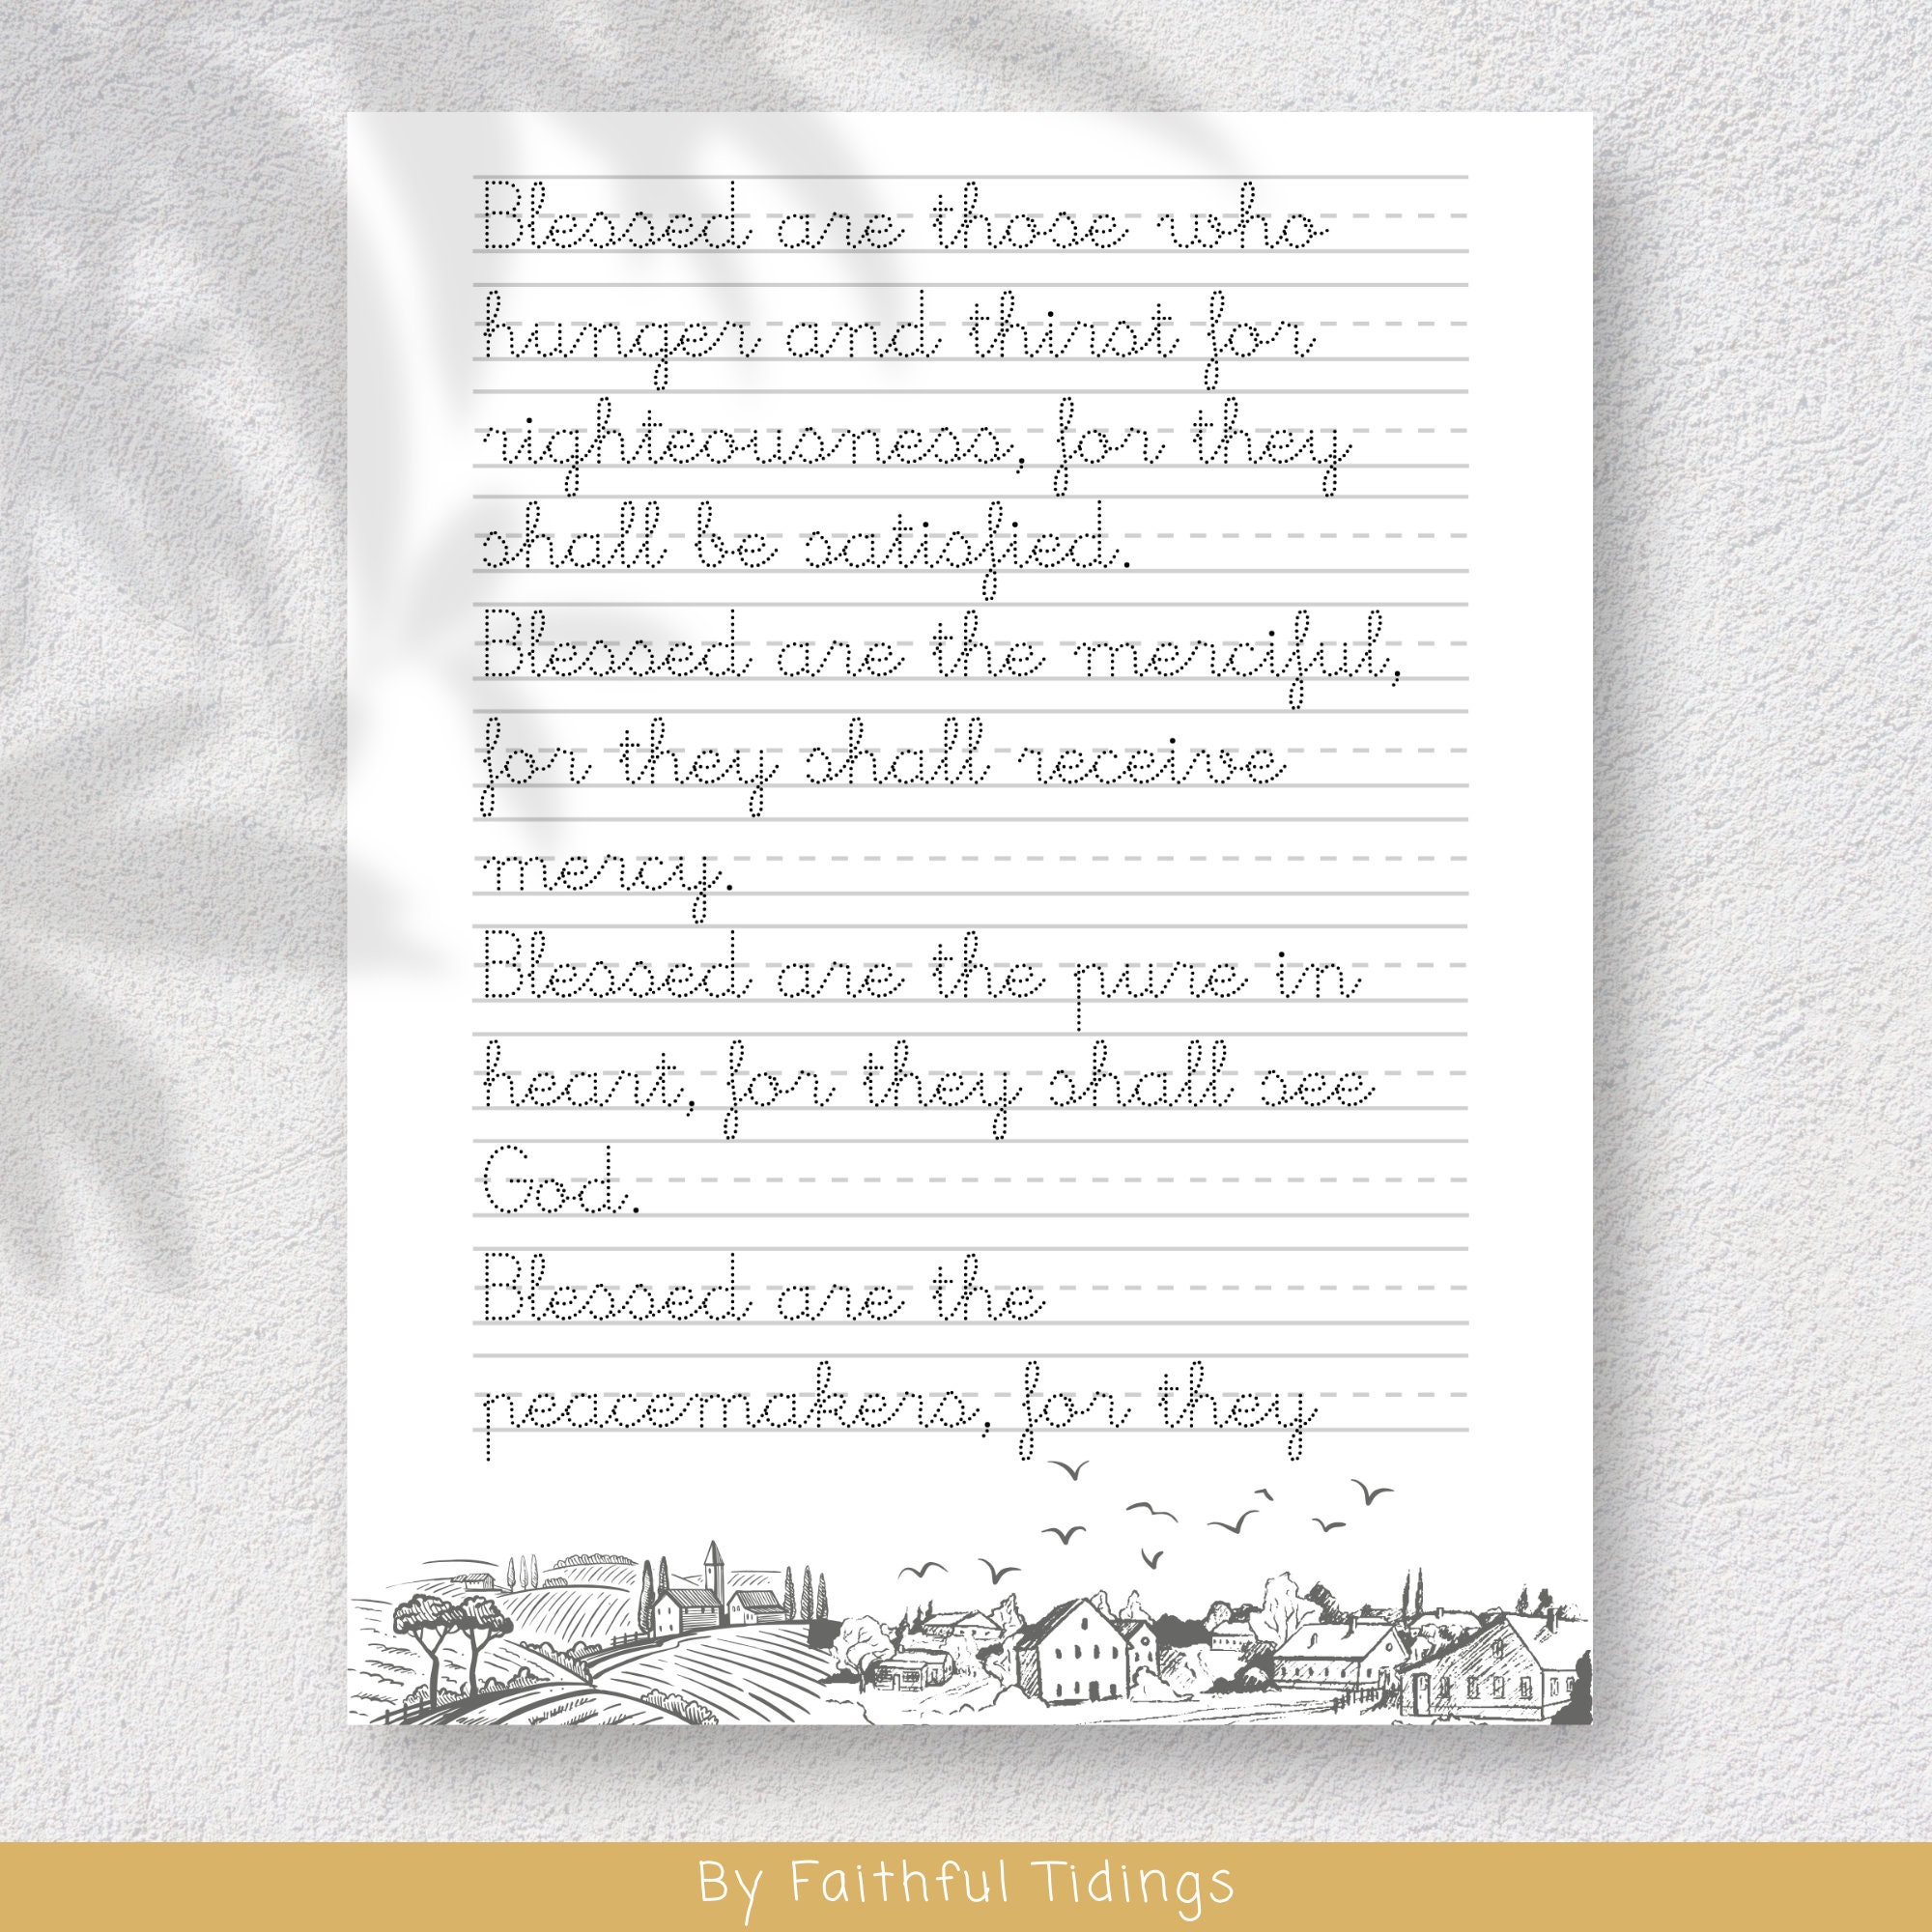 Blessed are those who
hunger and thirst for
righteousness, for they
shall be satisfied.
Blessed are the merciful,
for they shall receive
mercy.
Blessed are the pure in
heart, for they shall see
God.
Blessed are the
peacemakers, for they
By Faithful Tidings